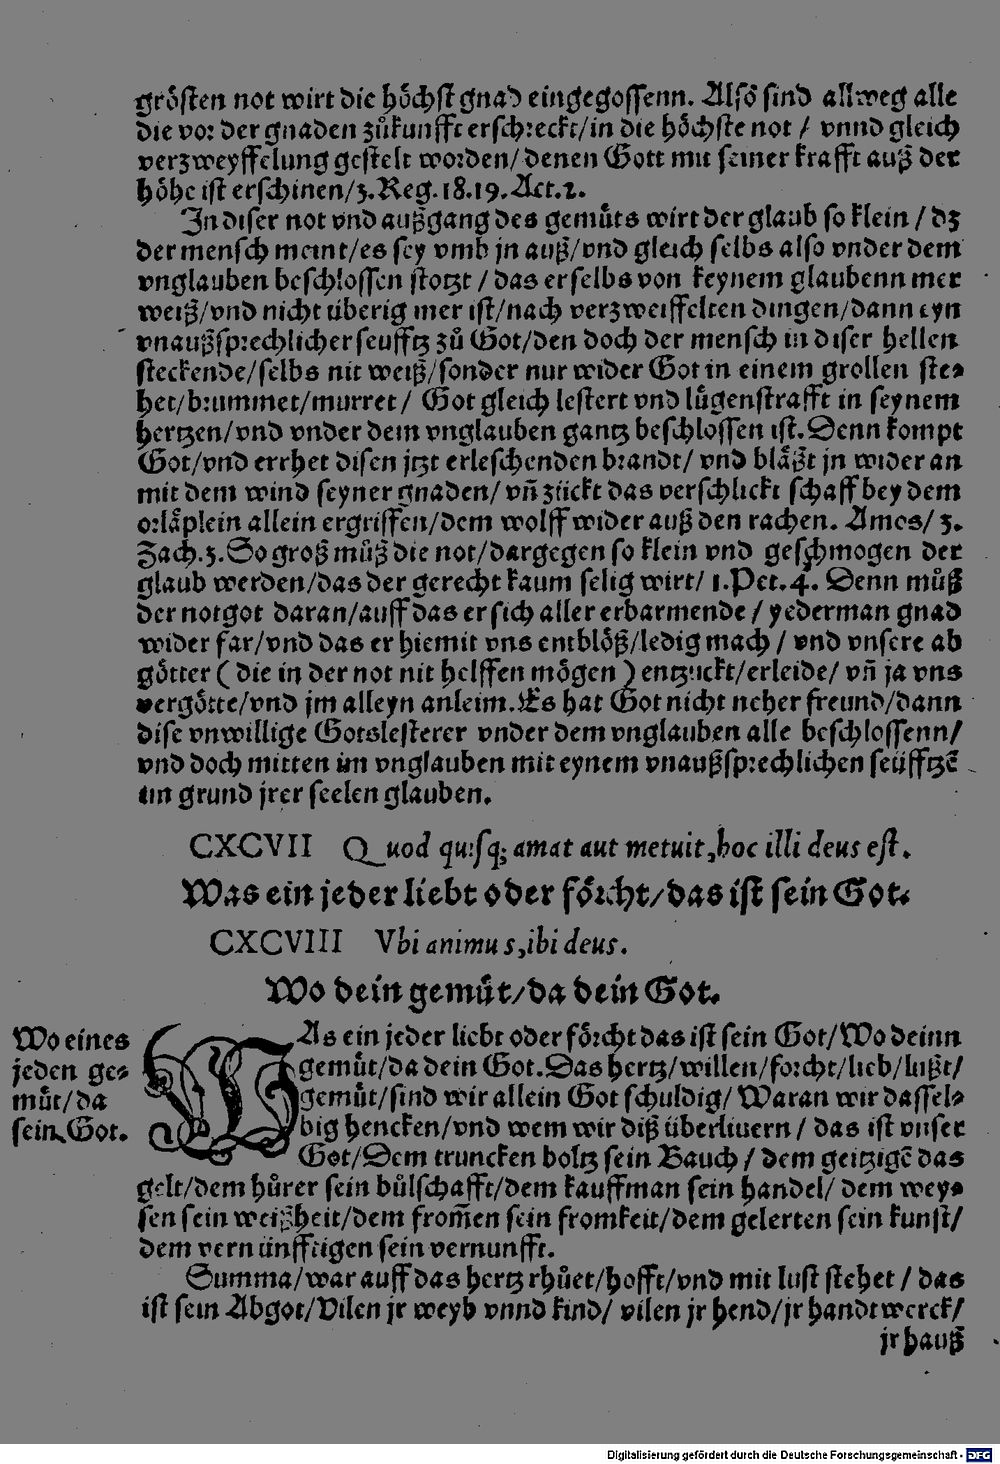 grösten not wirt die höchst gnad eingegossenn. Also sind allweg alle
die vor der gnaden zůkunfft erschreckt/in die höchste not / vnnd gleich
verzweyffelung gestelt worden/denen Gott mit seiner krafft auß der
höhe ist erschinen/3.Reg.18.19.Act.2.
In diser not vnd außgang des gemüts wirt der glaub so klein / dz
der mensch meint/es sey vmb jn auß/vnd gleich selbs also vnder dem
vnglauben beschlossen stotzt / das er selbs von keynem glaubenn mer
weiß/vnd nicht überig mer ist/nach verzweiffelten dingen/dann eyn
vnaußsprechlicher seufftz zů Got/den doch der mensch in diser hellen
steckende/selbs nit weiß/sonder nur wider Got in einem grollen ste⸗
het/brummet/murret / Got gleich lestert vnd lügenstrafft in seynem
hertzen/vnd vnder dem vnglauben gantz beschlossen ist. Denn kompt
Got/vnd errhet disen jtzt erleschenden brandt/ vnd bläßt jn wider an
mit dem wind seyner gnaden/ vñ zückt das verschlickt schaff bey dem
orläplein allein ergriffen/dem wolff wider auß den rachen. Amos/ 3.
Zach.3. So groß můß die not/dargegen so klein vnd geschmogen der
glaub werden/das der gerecht kaum selig wirt/ 1.Pet.4. Denn můß
der notgot daran/auff das er sich aller erbarmende / yederman gnad
wider far/vnd das er hiemit vns entblöß/ledig mach / vnd vnsere ab
götter ( die in der not nit helffen mögen ) entzuckt/erleide/ vñ ja vns
vergötte/vnd jm alleyn anleim. Es hat Got nicht neher freund/dann
dise vnwillige Gotslesterer vnder dem vnglauben alle beschlossenn/
vnd doch mitten im vnglauben mit eynem vnaußsprechlichen seüfftzē
im grund jrer seelen glauben.
CXCVII Quod quisq; amat aut metuit,hoc illi deus est.
Was ein jeder liebt oder förcht/das ist sein Got.
CXCVIII Vbi animus,ibi deus.
Wo dein gemüt/da dein Got.
Wo eines
jeden ge⸗
müt/da
sein Got.
WAs ein jeder liebt oder förcht das ist sein Got/Wo deinn
gemüt/da dein Got. Das hertz/willen/forcht/lieb/lußt/
gemüt/sind wir allein Got schuldig/ Waran wir dassel⸗
big hencken/vnd wem wir diß überliuern / das ist vnser
Got/Dem truncken boltz sein Bauch / dem geitzigē das
gelt/dem hůrer sein bůlschafft/dem kauffman sein handel/ dem wey⸗
sen sein weißheit/dem from̃en sein fromkeit/dem gelerten sein kunst/
dem vernünfftigen sein vernunfft.
Summa/war auff das hertz rhůet/hofft/vnd mit lust stehet / das
ist sein Abgot/Vilen jr weyb vnnd kind/ vilen jr hend/jr handtwerck/
jr hauß
Digitalisierung gefördert durch die Deutsche Forschungsgemeinschaft - DFG